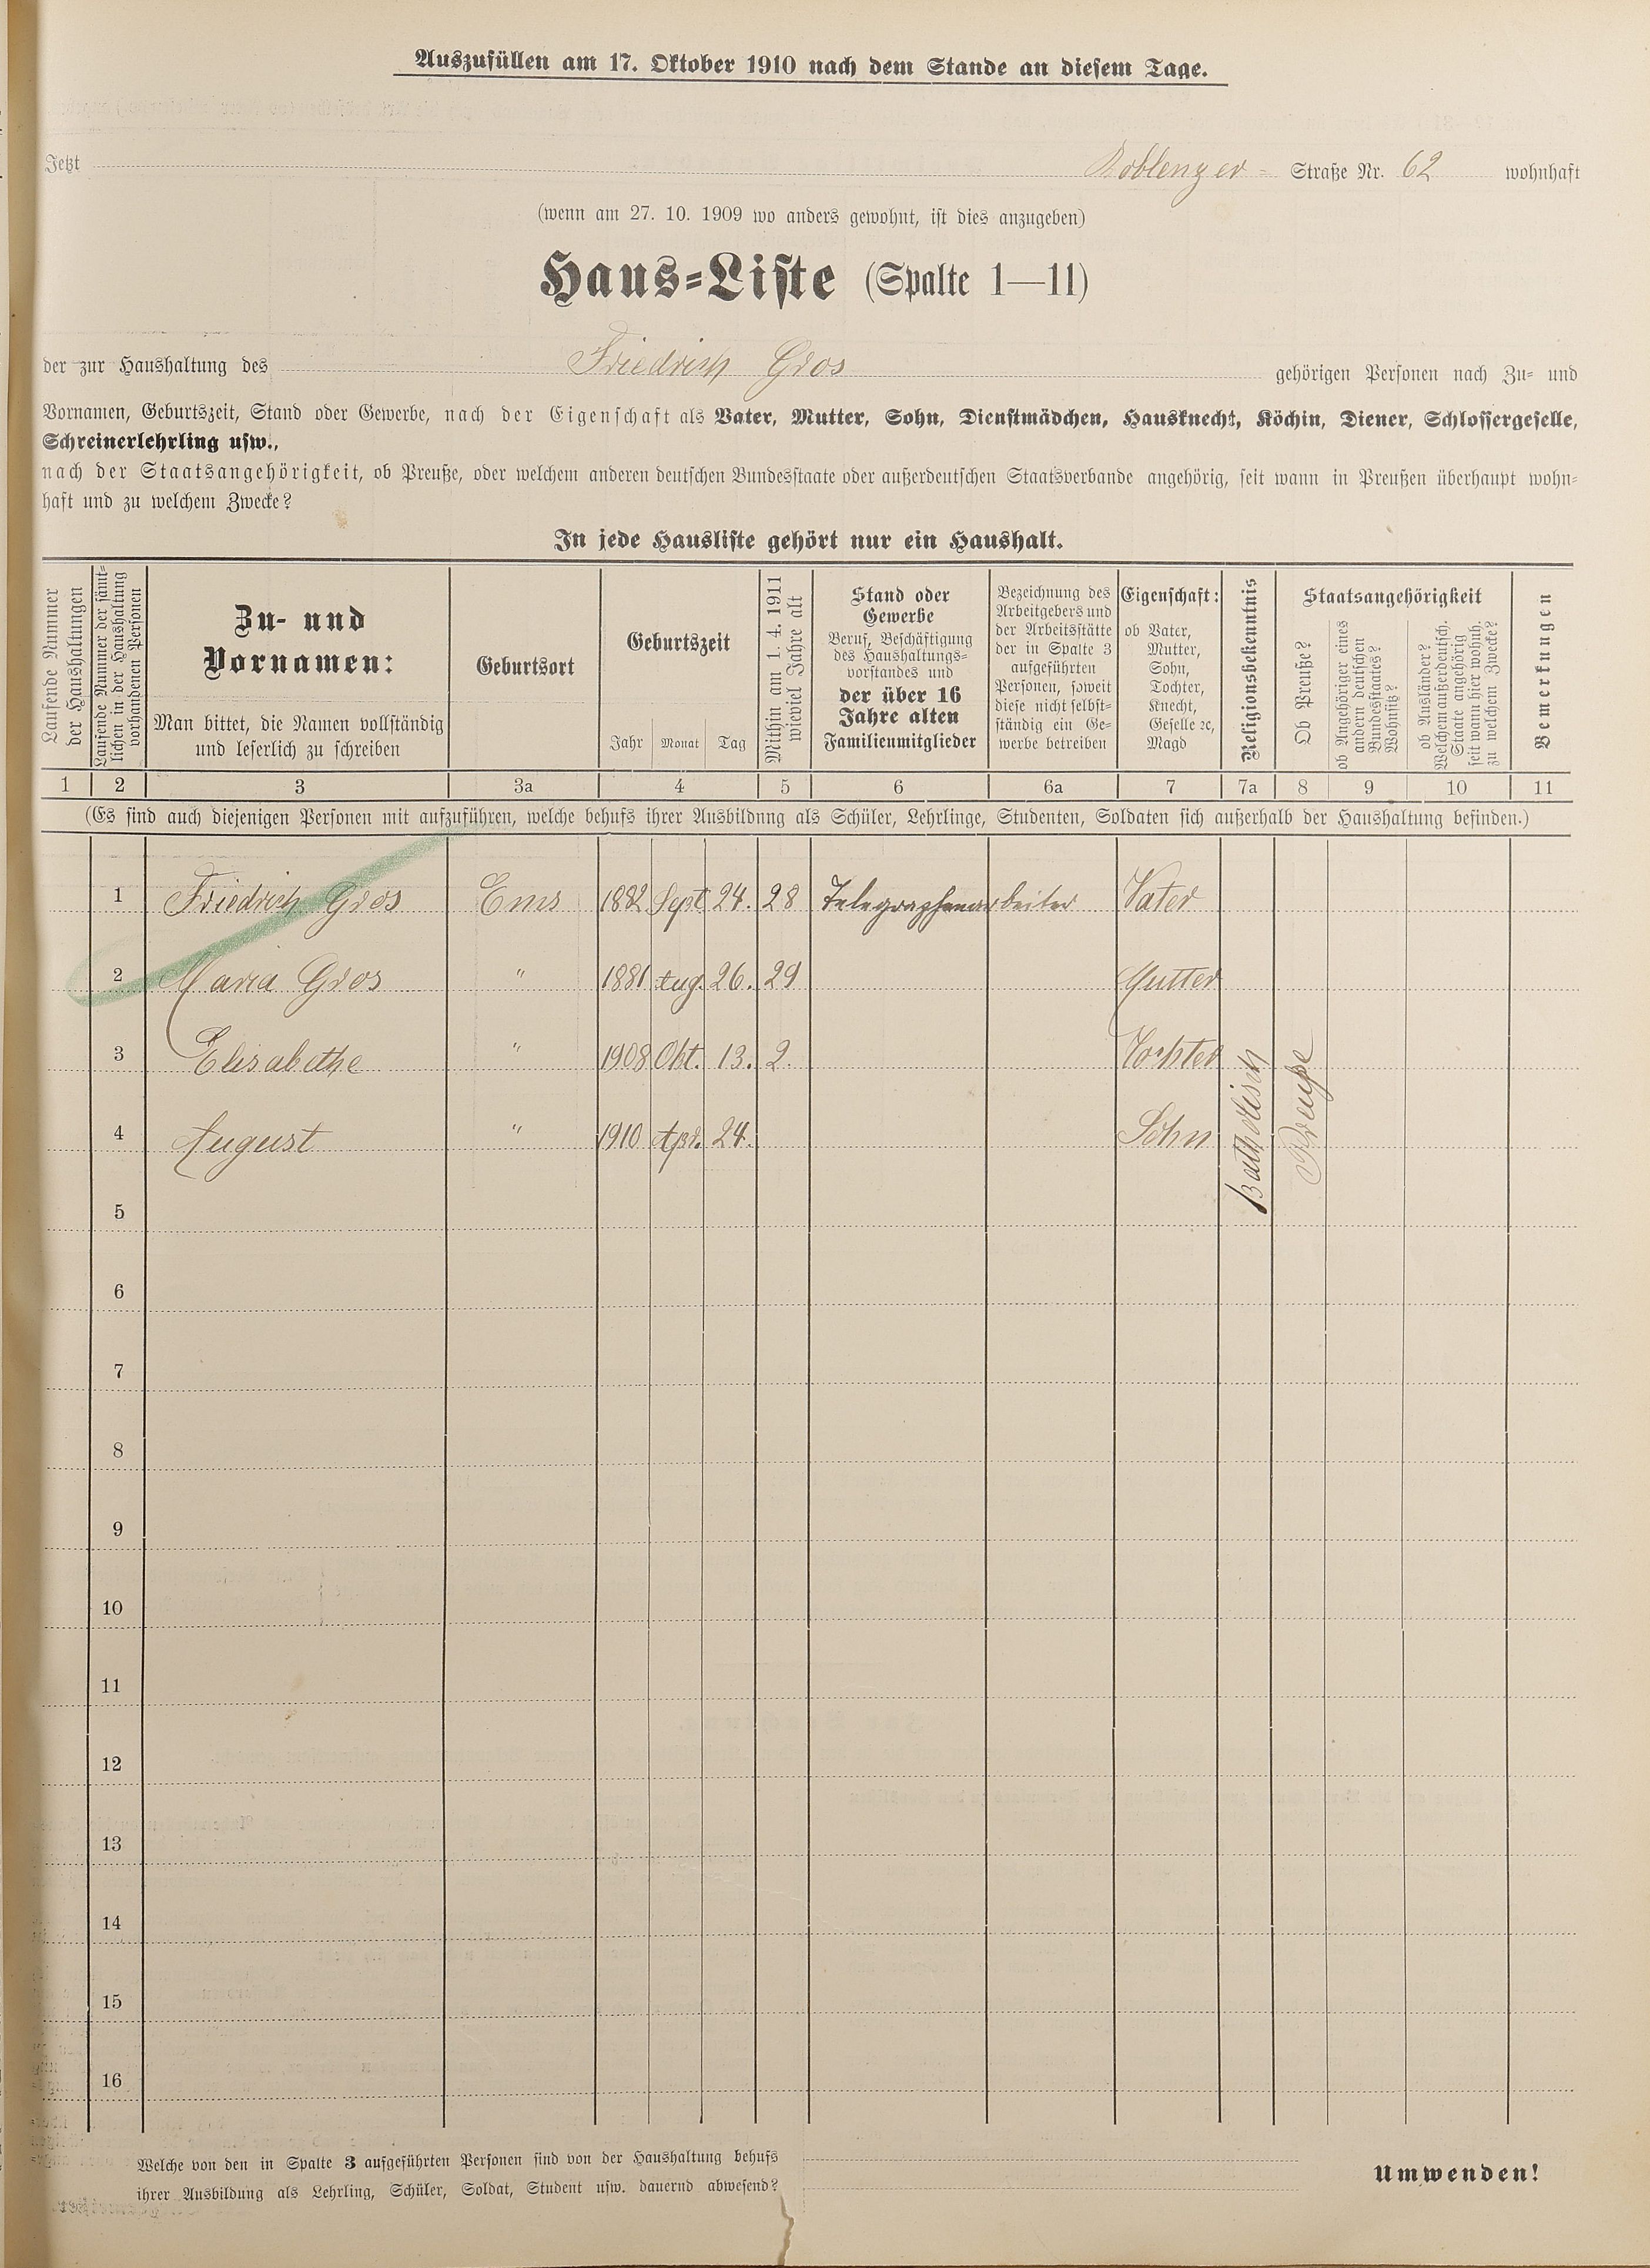 Auszufüllen am 17. Oktober 1910 nach dem Stande an diesem Tage.
Jetzt Koblenzer- Straße Nr. 62 wohnhaft
(wenn am 27. 10. 1909 wo anders gewohnt, ist dies anzugeben)
Haus-Liste (Spalte 1—11)
der zur Haushaltung des Friedrich Gros gehörigen Personen nach Zu- und
Vornamen, Geburtszeit, Stand oder Gewerbe, nach der Eigenschaft als Vater, Mutter, Sohn, Dienstmädchen, Hausknecht, Köchin, Diener, Schlossergeselle,
Schreinerlehrling usw.,
nach der Staatsangehörigkeit, ob Preuße, oder welchem anderen deutschen Bundesstaate oder außerdeutschen Staatsverbande angehörig, seit wann in Preußen überhaupt wohn-
haft und zu welchem Zwecke?
In jede Hausliste gehört nur ein Haushalt.
Laufende Nummer
der Haushaltungen
Laufende Nummer der sämt-
lichen in der Haushaltung
vorhandenen Personen
Zu- und
Vornamen:
Man bittet, die Namen vollständig
und leserlich zu schreiben
Geburtsort
Geburtszeit
Jahr Monat Tag
Mithin am 1. 4. 1911
wieviel Jahre alt
Stand oder
Gewerbe
Beruf, Beschäftigung
des Haushaltungs-
vorstandes und
der über 16
Jahre alten
Familienmitglieder
Bezeichnung des
Arbeitgebers und
der Arbeitsstätte
der in Spalte 3
aufgeführten
Personen, soweit
diese nicht selbst-
ständig ein Ge-
werbe betreiben
Eigenschaft:
ob Vater,
Mutter,
Sohn,
Tochter,
Knecht,
Geselle ꝛc,
Magd
Religionsbekenntnis
Staatsangehörigkeit
Ob Preuße?
ob Angehöriger eines
andern deutschen
Bundesstaates?
Wohnsitz?
ob Ausländer?
Welchem außerdeutsch.
Staate angehörig
seit wann hier wohnh.
zu welchem Zwecke?
Bemerkungen
1 2 3 3a 4 5 6 6a 7 7a 8 9 10 11
(Es sind auch diejenigen Personen mit aufzuführen, welche behufs ihrer Ausbildung als Schüler, Lehrlinge, Studenten, Soldaten sich außerhalb der Haushaltung befinden.)
1 Friedrich Gros Ems 1882 Sept 24. 28 Telegraphenarbeiter Vater
2 Maria Gros " 1881 Aug. 26. 29 Mutter
3 Elisabethe " 1908 Okt. 13. 2. Tochter
4 August " 1910 Apr. 24. Sohn
Katholisch
Preuße
5
6
7
8
9
10
11
12
13
14
15
16
Welche von den in Spalte 3 aufgeführten Personen sind von der Haushaltung behufs
ihrer Ausbildung als Lehrling, Schüler, Soldat, Student usw. dauernd abwesend?
Umwenden!